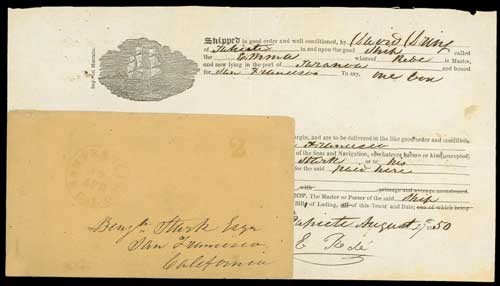 Shipped in good order and well conditioned, by David
of Papeete in and upon the good Ship called
the Emma whereof is Master,
and now lying in the port of and bound
for San Francisco To say, One Box
argin, and are to be delivered in the like good order and condition,
San Francisco
of the Seas and Navigation, of whatever nature or kind, excepted)
Sturk or to his
for the said paid here
with primage and average accustomed.
OP. The Master or Purser of the said Ship
Bills of Lading, all of this Tenor and Date; one of which being
Papeete August 50
E
2
CAL
Benjn Sturk Esqr
San Francisco
California